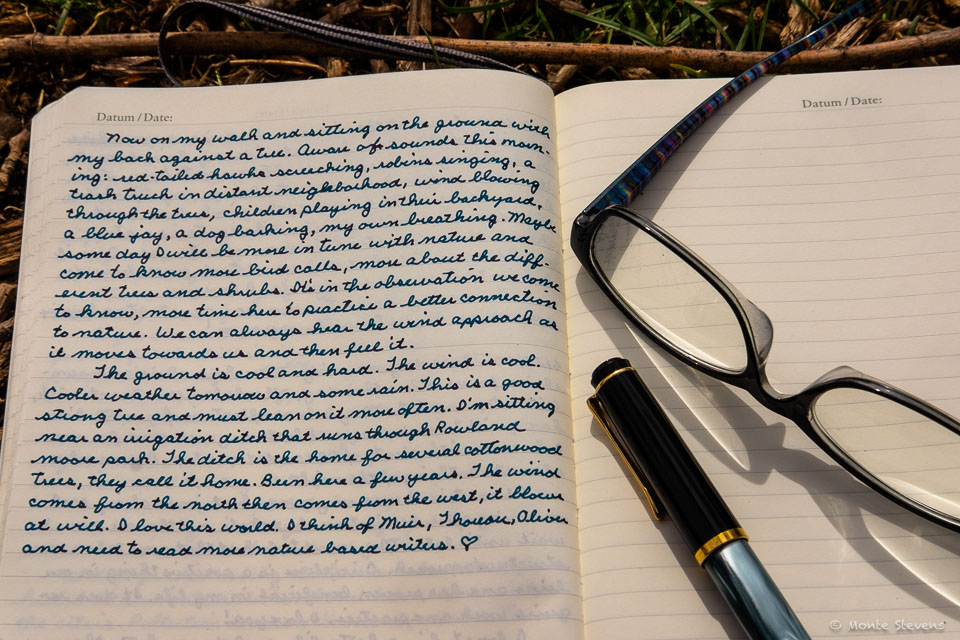 Datum / Date:
Now on my walk and sitting on the ground with
my back against a tree. Aware of sounds this morn-
ing: red-tailed hawks screeching, robins singing, a
trash truck in distant neighborhood, wind blowing
through the trees, children playing in their backyard,
a blue jay, a dog barking, my own breathing. Maybe
some day I will be more in tune with nature and
come to know more bird calls, more about the diff-
erent trees and shrubs. It's in the observation we come
to know, more time here to practice a better connection
to nature. We can always hear the wind approach as
it moves towards us and then feel it.
The ground is cool and hard. The wind is cool.
Cooler weather tomorrow and some rain. This is a good
strong tree and must lean on it more often. I'm sitting
near an irrigation ditch that runs through Rowland
moore park. The ditch is the home for several cottonwood
trees, they call it home. Been here a few years. The wind
comes from the north then comes from the west, it blows
at will. I love this world. I think of Muir, Thoreau, Oliver
and need to read more nature based writers. ♡
Datum / Date:
© Monte Stevens